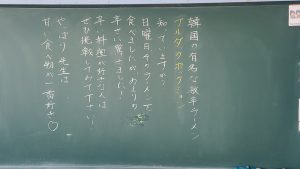 韓国の有名な激辛ラーメン
ブルダックポックンミョン
知っていますか?
日曜日そのラーメンを
食べましたがあまりの
辛さに驚きました!
辛い料理が好きな人は
ぜひ挑戦してみて下さい!
やっぱり先生は
甘い食べ物が一番好き♡